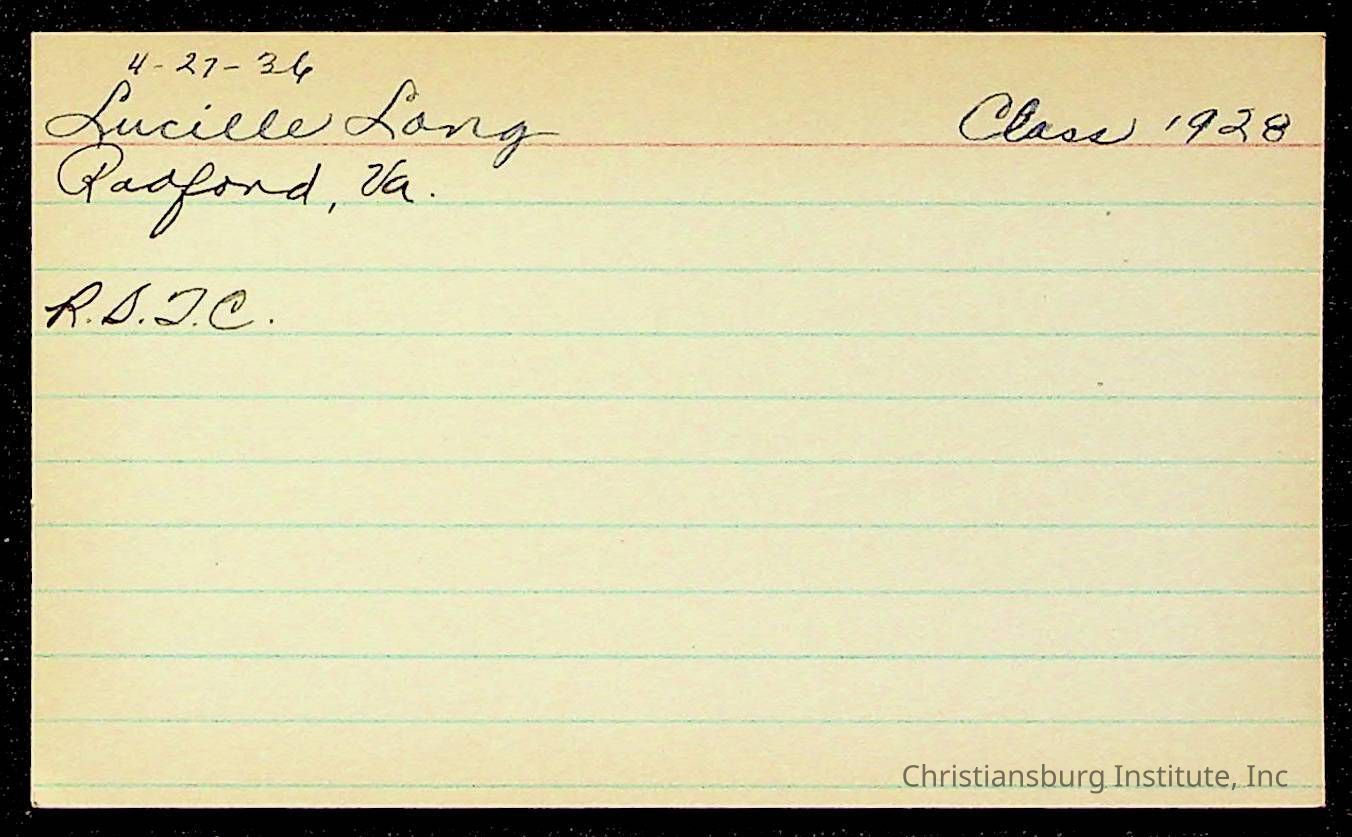 4-27-36
Lucille Long Class 1928
Radford, Va.
R.S.T.C.
Christiansburg Institute, Inc